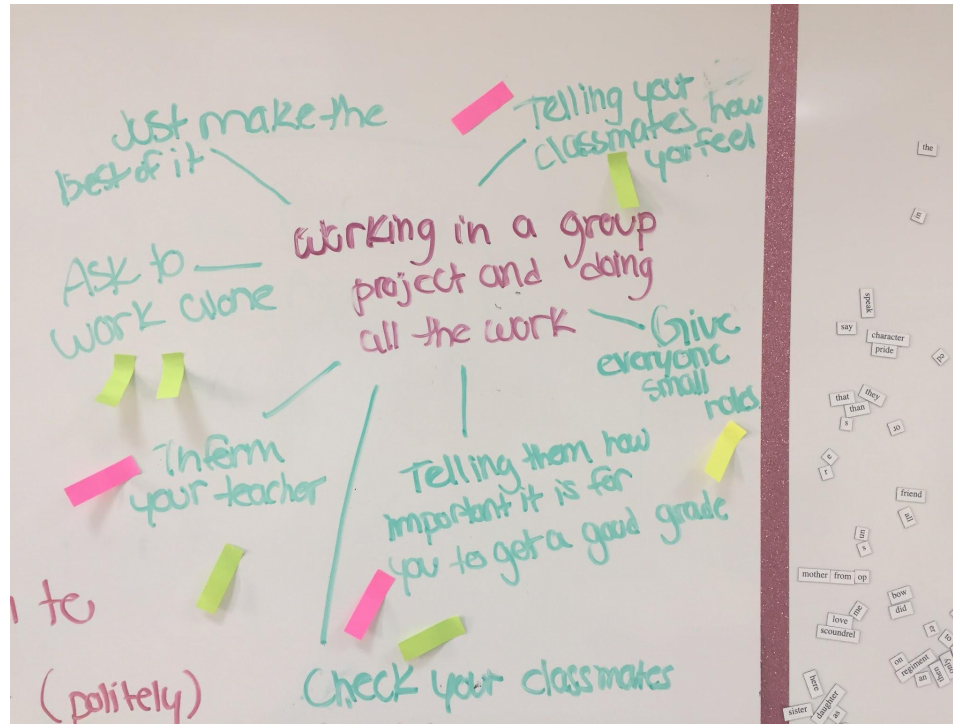 Just make the
best of it
Telling your
classmates how
you feel
working in a group
project and doing
all the work
Ask to
work alone
Give
everyone
small
roles
Inform
your teacher
Telling them how
important it is for
you to get a good grade
Check your classmates
to
(politely)
the
in
speak
say
character
pride
ed
that
they
than
s
or
e
r
friend
all
un
s
mother from op
me
love
scoundrel
bow
did
er
to
on
regiment
an
then
only
here
daughter
sister
as